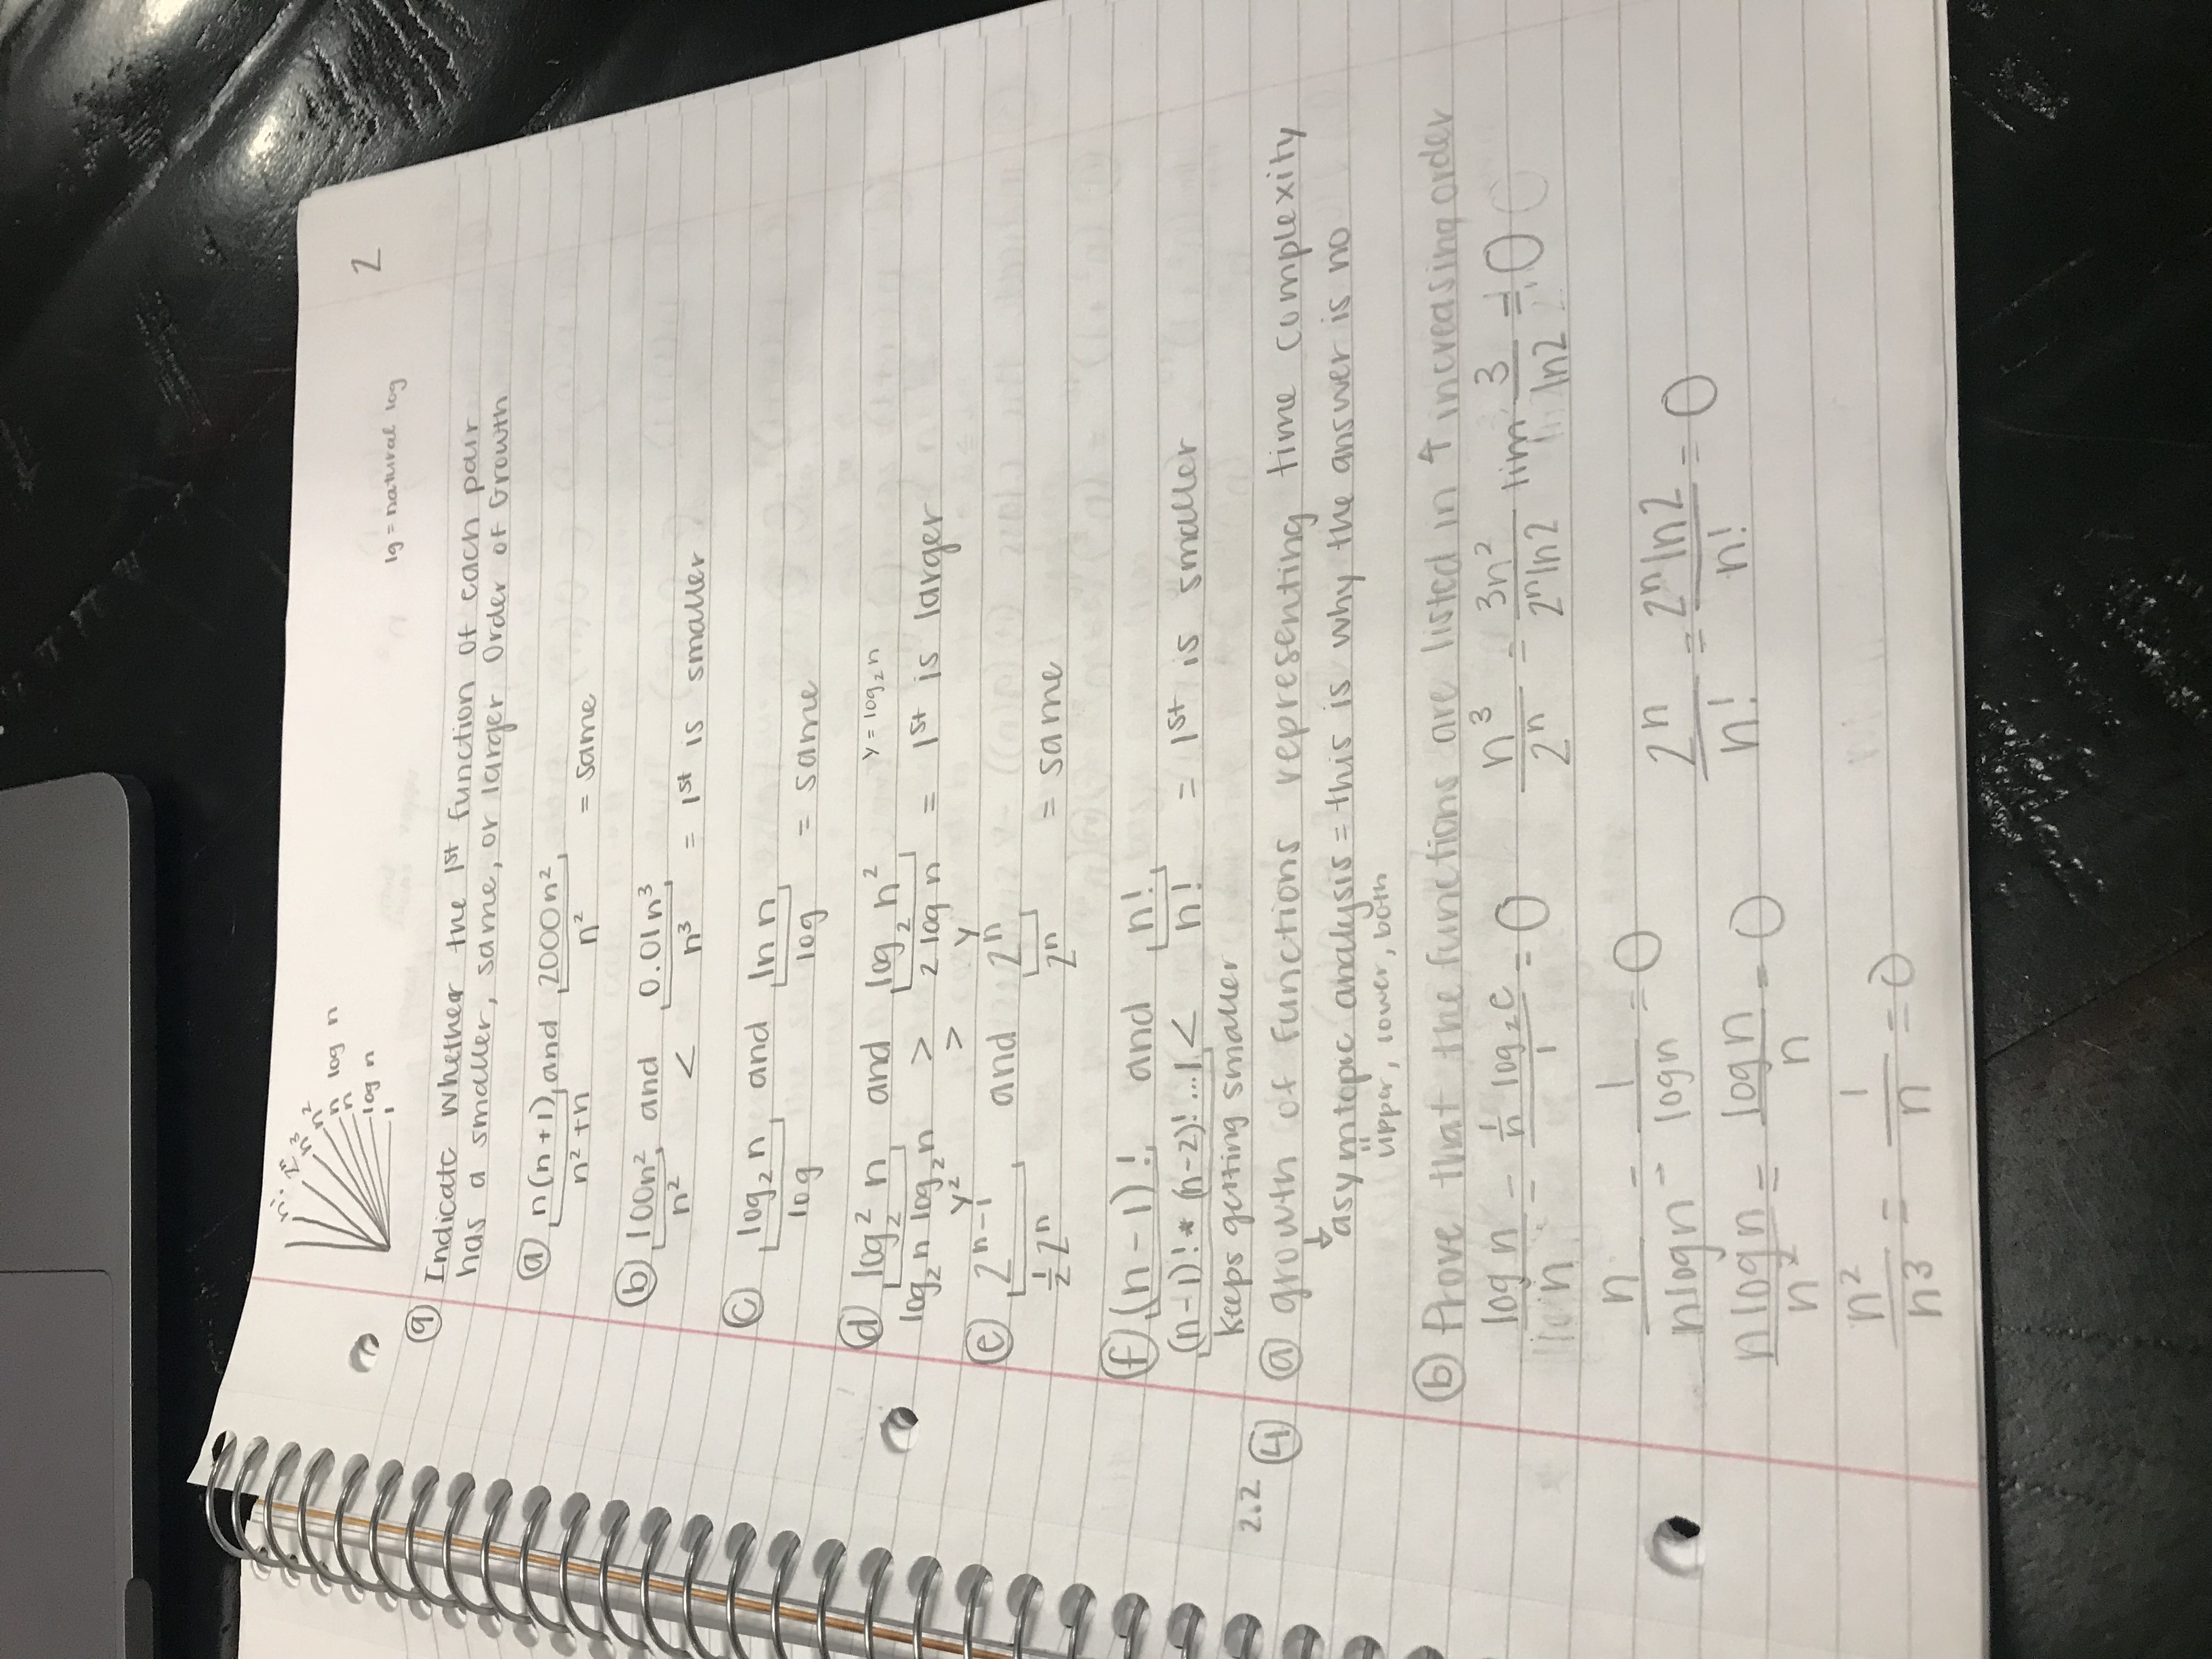 n!
2ⁿ
n³
n²
n log n
n
log n
1
2
lg = natural log
⑨ Indicate whether the 1st function of each pair
has a smaller, same, or larger Order of Growth
ⓐ n(n+1) and 2000n²
n² + n n² = same
ⓑ 100n² and 0.01n³
n² < n³ = 1st is smaller
ⓒ log₂ n and ln n
log log = same
ⓓ log₂² n and log₂ n² y = log₂ n
log₂n log₂n > 2 log n = 1st is larger
y² > y
ⓔ 2ⁿ⁻¹ and 2ⁿ
½ 2ⁿ 2ⁿ = same
ⓕ (n-1)! and n!
(n-1)! * (n-2)! ...1 < n! = 1st is smaller
keeps getting smaller
2.2 ④ ⓐ growth of functions representing time complexity
asymtopic analysis = this is why the answer is no
upper, lower, both
ⓑ Prove that the functions are listed in ↑ increasing order
log n / n = 1/n log₂e / 1 = 0 n³ / 2ⁿ = 3n² / 2ⁿ ln2 lim 3 / ln2 = 0
n / nlogn = 1 / logn = 0
2ⁿ / n! = 2ⁿ ln2 / n! = 0
nlogn / n² = logn / n = 0
n² / n3 = 1 / n = 0